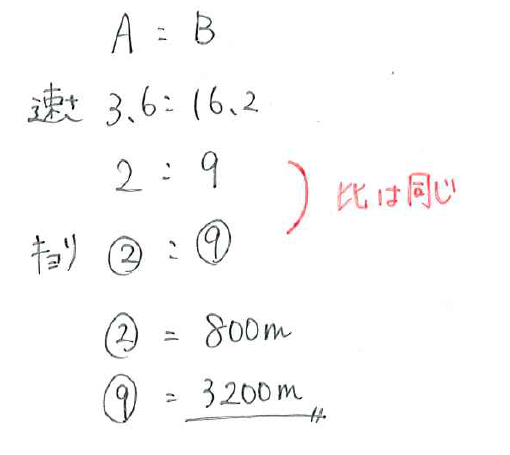 A : B
速さ 3.6 : 16.2
2 : 9
比は同じ
キョリ ② : ⑨
② = 800m
⑨ = 3200m